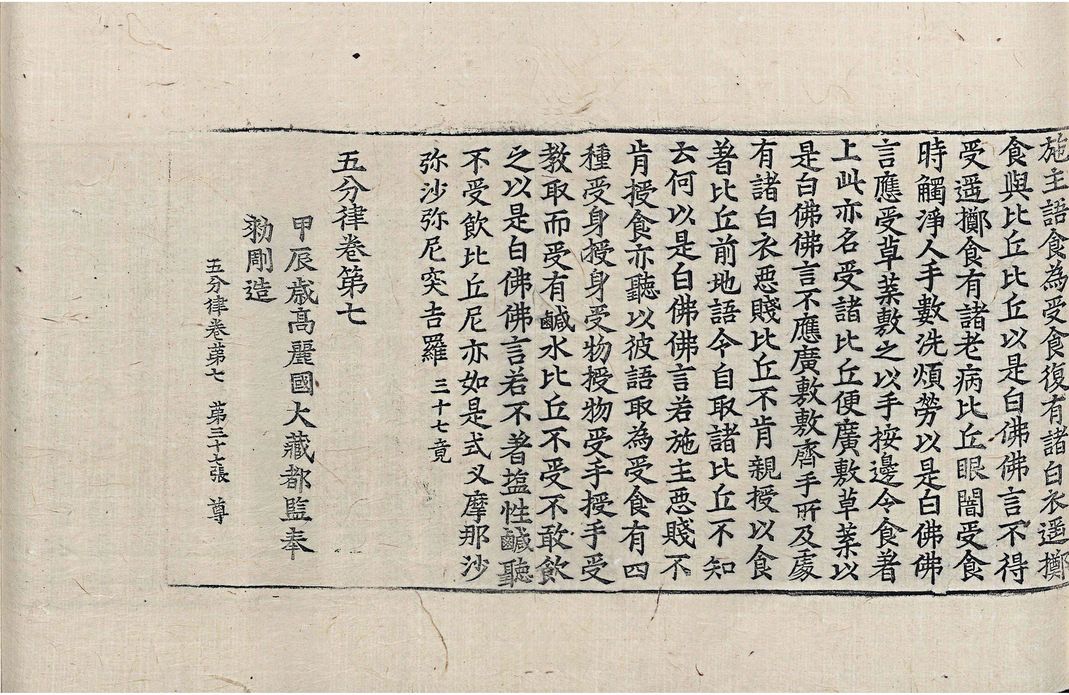 施主語食為受食復有諸白衣遥擲
食與比丘比丘以是白佛佛言不得
受遥擲食有諸老病比丘眼闇受食
時觸淨人手數洗煩勞以是白佛佛
言應受草葉敷之以手按邊令食著
上此亦名受諸比丘便廣敷草葉以
是白佛佛言不應廣敷敷齊手所及處
有諸白衣惡賤比丘不肯親授以食
著比丘前地語今自取諸比丘不知
云何以是白佛佛言若施主惡賤不
肯授食亦聽以彼語取為受食有四
種受身授身受物授物受手授手受
教取而受有鹹水比丘不受不敢飲
之以是白佛佛言若不著塩性鹹聽
不受飲比丘尼亦如是式叉摩那沙
弥沙弥尼突吉羅 三十七竟
五分律卷第七
甲辰歳高麗國大藏都監奉
勑剛造
五分律卷第七 第三十七張 尊